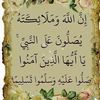 إِنَّ اللَّهَ وَمَلَائِكَتَهُ
يُصَلُّونَ عَلَى النَّبِيِّ ۚ
يَا أَيُّهَا الَّذِينَ آمَنُوا
صَلُّوا عَلَيْهِ وَسَلِّمُوا تَسْلِيمًا